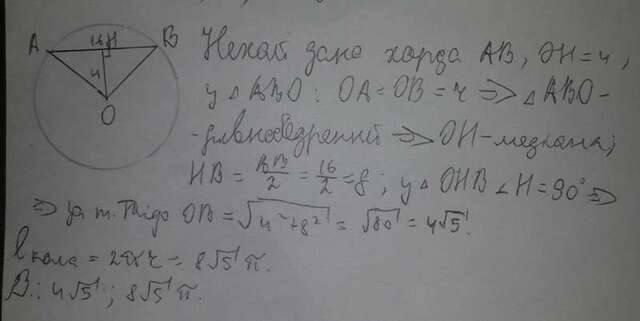 A 16 H B
4
O
Нехай дана хорда AB, OH=4,
у △ ABO: OA=OB=r ⇒ △ABO-
-рівнобедренний ⇒ OH-медиана;
HB = AB/2 = 16/2 = 8; у △ OHB ∠H=90° ⇒
⇒ за т. Піфо OB = √(4²+8²) = √80 = 4√5.
l кола = 2πr = 8√5 π.
В.: 4√5; 8√5 π.